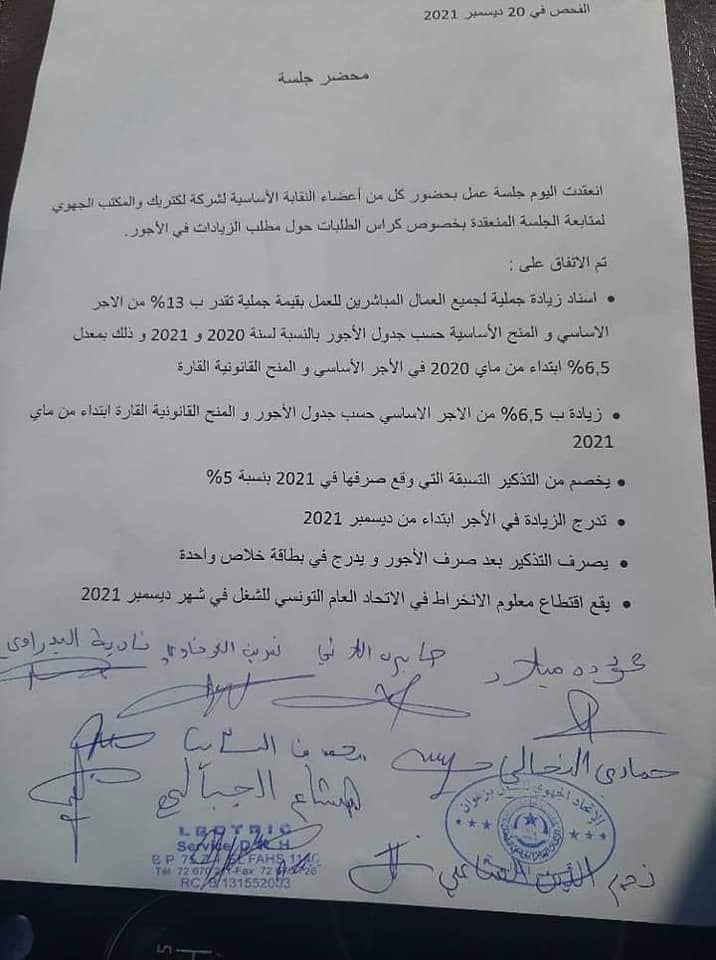 الفحص في 20 ديسمبر 2021
محضر جلسة
انعقدت اليوم جلسة عمل بحضور كل من أعضاء النقابة الأساسية لشركة لكتريك والمكتب الجهوي
لمتابعة الجلسة المنعقدة بخصوص كراس الطلبات حول مطلب الزيادات في الأجور.
تم الاتفاق على :
• اسناد زيادة جملية لجميع العمال المباشرين للعمل بقيمة جملية تقدر ب 13% من الاجر
الاساسي و المنح الأساسية حسب جدول الأجور بالنسبة لسنة 2020 و 2021 و ذلك بمعدل
6,5% ابتداء من ماي 2020 في الأجر الأساسي و المنح القانونية القارة
• زيادة ب 6,5% من الاجر الاساسي حسب جدول الأجور و المنح القانونية القارة ابتداء من ماي
2021
• يخصم من التذكير التسبقة التي وقع صرفها في 2021 بنسبة 5%
• تدرج الزيادة في الأجر ابتداء من ديسمبر 2021
• يصرف التذكير بعد صرف الأجور و يدرج في بطاقة خلاص واحدة
• يقع اقتطاع معلوم الانخراط في الاتحاد العام التونسي للشغل في شهر ديسمبر 2021
ميلاد
نادية البدراوي
حمادي
هشام الجبالي
الإتحاد الجهوي للشغل بزغوان
LECTRIC
Service D.R.H
B.P 75 Z.I. EL FAHS 1140
Tél 72 670
Fax 72
RC/B/131552003